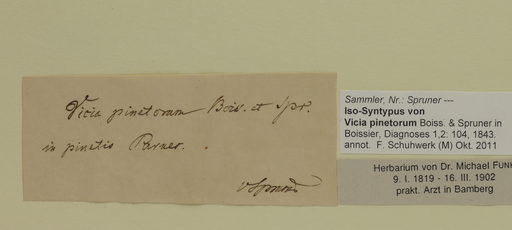 Vicia pinetorum Boiss. et Spr.
in pinetis Parnes.
v Spruner
Sammler, Nr.: Spruner ---
Iso-Syntypus von
Vicia pinetorum Boiss. & Spruner in
Boissier, Diagnoses 1,2: 104, 1843.
annot. F. Schuhwerk (M) Okt. 2011
Herbarium von Dr. Michael FUNK
9. I. 1819 - 16. III. 1902
prakt. Arzt in Bamberg